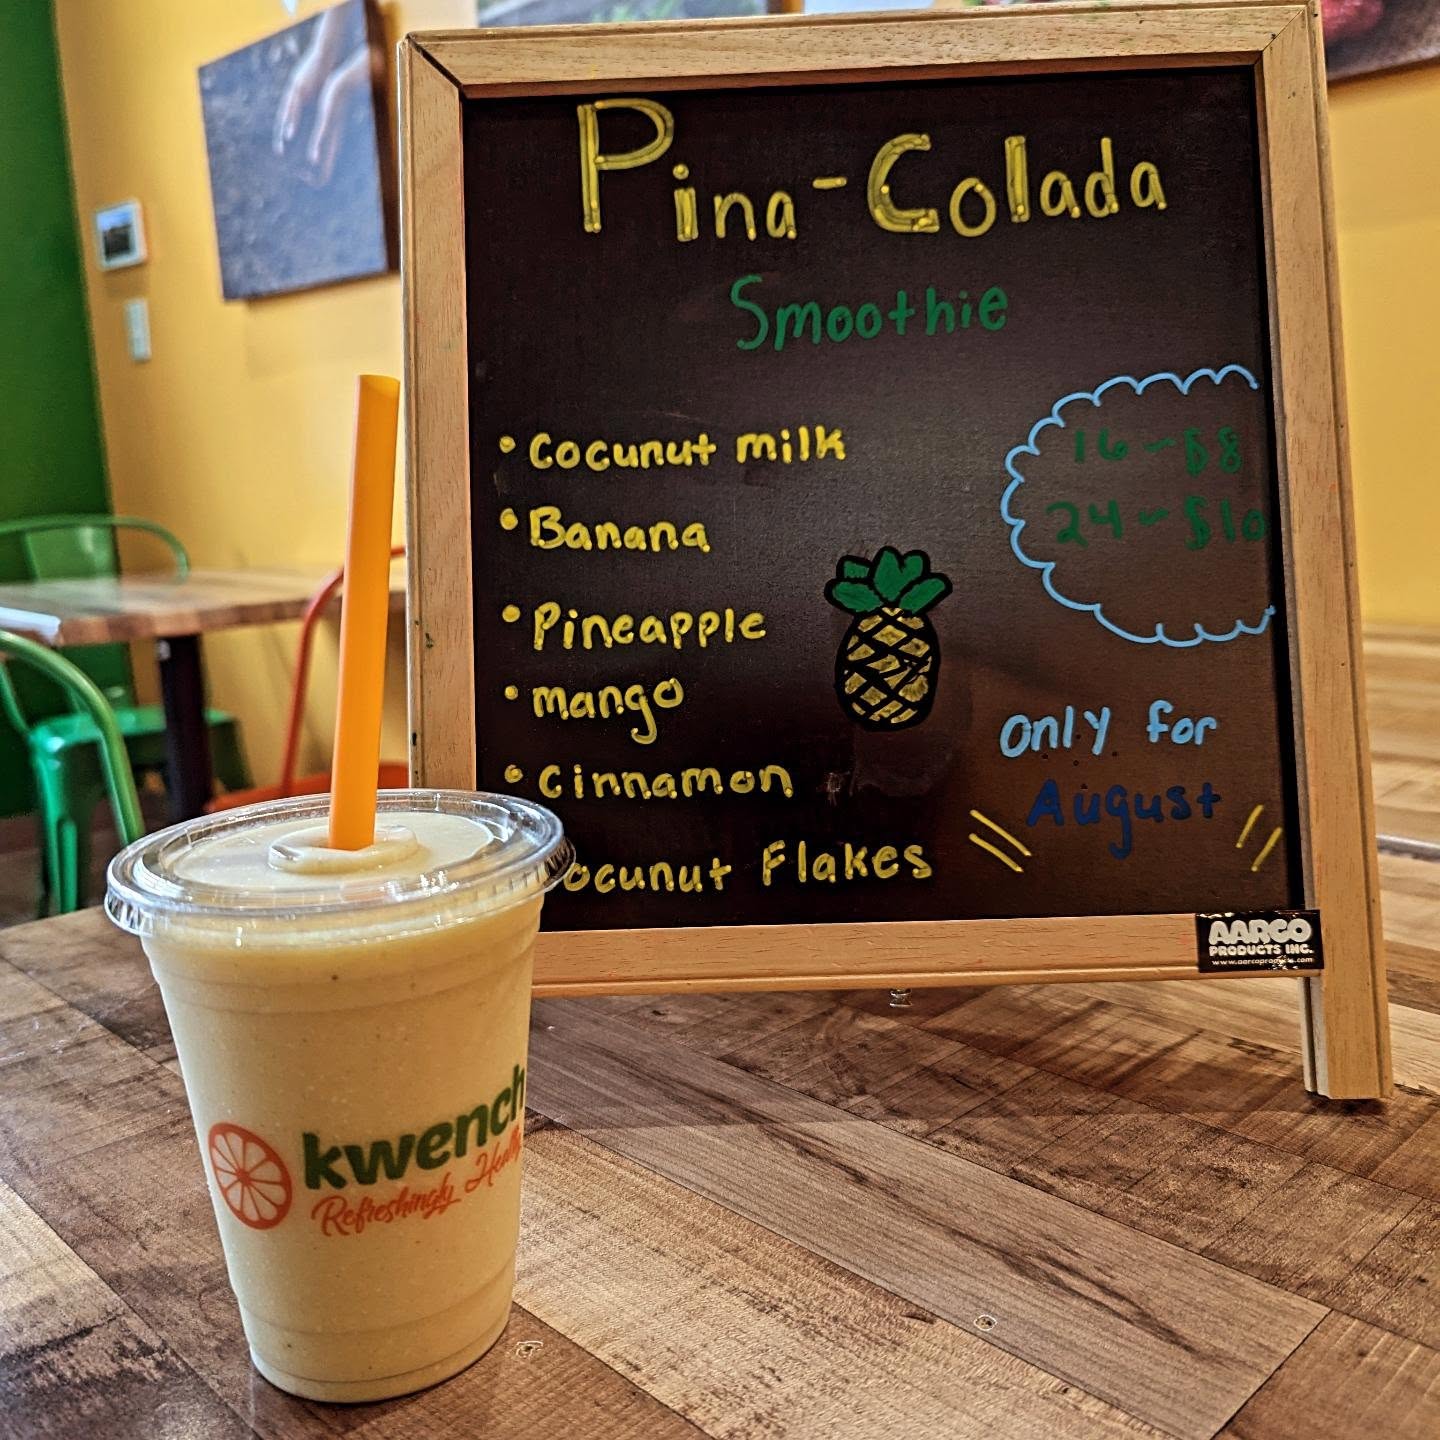 Pina-Colada
Smoothie
• Cocunut milk
• Banana
• Pineapple
• mango
• cinnamon
ocunut Flakes
16 - $8
24 - $10
Only for
August
AARCO
PRODUCTS INC.
www.aarcoproducts.com
kwench
Refreshingly Healthy